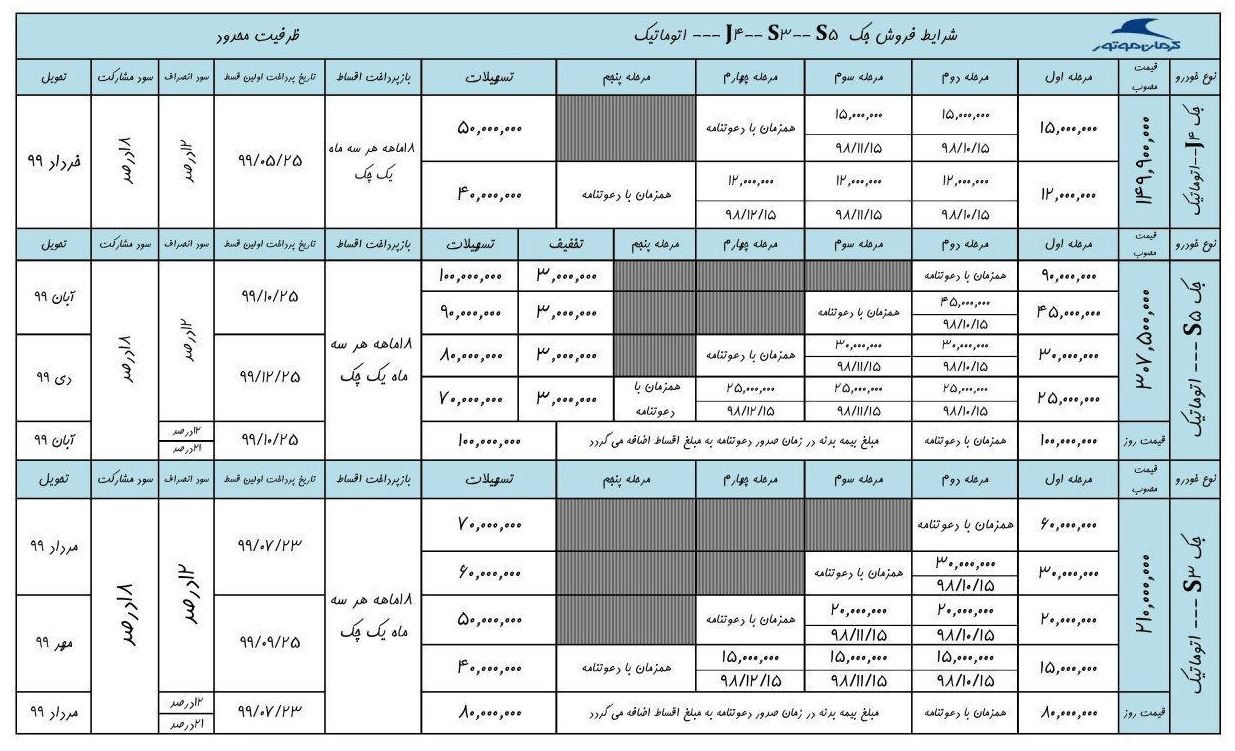 شرایط فروش جک S۵ --S۳--J۴ --- اتوماتیک ظرفیت محدود
کرمان‌موتور
نوع خودرو قیمت مصوب مرحله اول مرحله دوم مرحله سوم مرحله چهارم مرحله پنجم تسهیلات بازپرداخت اقساط تاریخ پرداخت اولین قسط سود انصراف سود مشارکت تحویل
جک J۴--اتوماتیک ۱۴۹,۹۰۰,۰۰۰
۱۵,۰۰۰,۰۰۰ ۱۵,۰۰۰,۰۰۰ ۱۵,۰۰۰,۰۰۰ همزمان با دعوتنامه ۵۰,۰۰۰,۰۰۰
۹۸/۱۰/۱۵ ۹۸/۱۱/۱۵
۱۸ماهه هر سه ماه
یک چک
۹۹/۰۵/۲۵ ۱۲درصد ۱۸درصد خرداد ۹۹
۱۲,۰۰۰,۰۰۰ ۱۲,۰۰۰,۰۰۰ ۱۲,۰۰۰,۰۰۰ ۱۲,۰۰۰,۰۰۰ همزمان با دعوتنامه ۴۰,۰۰۰,۰۰۰
۹۸/۱۰/۱۵ ۹۸/۱۱/۱۵ ۹۸/۱۲/۱۵
نوع خودرو قیمت مصوب مرحله اول مرحله دوم مرحله سوم مرحله چهارم مرحله پنجم تخفیف تسهیلات بازپرداخت اقساط تاریخ پرداخت اولین قسط سود انصراف سود مشارکت تحویل
جک S۵ --- اتوماتیک ۳۰۷,۵۰۰,۰۰۰
۹۰,۰۰۰,۰۰۰ همزمان با دعوتنامه ۳,۰۰۰,۰۰۰ ۱۰۰,۰۰۰,۰۰۰
۹۹/۱۰/۲۵ آبان ۹۹
۴۵,۰۰۰,۰۰۰ ۴۵,۰۰۰,۰۰۰ همزمان با دعوتنامه ۳,۰۰۰,۰۰۰ ۹۰,۰۰۰,۰۰۰
۹۸/۱۰/۱۵
۱۸ماهه هر سه
ماه یک چک
۱۲درصد ۱۸درصد
۳۰,۰۰۰,۰۰۰ ۳۰,۰۰۰,۰۰۰ ۳۰,۰۰۰,۰۰۰ همزمان با دعوتنامه ۳,۰۰۰,۰۰۰ ۸۰,۰۰۰,۰۰۰
۹۸/۱۰/۱۵ ۹۸/۱۱/۱۵
۹۹/۱۲/۲۵ دی ۹۹
۲۵,۰۰۰,۰۰۰ ۲۵,۰۰۰,۰۰۰ ۲۵,۰۰۰,۰۰۰ ۲۵,۰۰۰,۰۰۰ همزمان با دعوتنامه ۳,۰۰۰,۰۰۰ ۷۰,۰۰۰,۰۰۰
۹۸/۱۰/۱۵ ۹۸/۱۱/۱۵ ۹۸/۱۲/۱۵
قیمت روز ۱۰۰,۰۰۰,۰۰۰ همزمان با دعوتنامه مبلغ بیمه بدنه در زمان صدور دعوتنامه به مبلغ اقساط اضافه می گردد ۱۰۰,۰۰۰,۰۰۰ ۹۹/۱۰/۲۵ ۱۲درصد آبان ۹۹
۲۱درصد
نوع خودرو قیمت مصوب مرحله اول مرحله دوم مرحله سوم مرحله چهارم مرحله پنجم تسهیلات بازپرداخت اقساط تاریخ پرداخت اولین قسط سود انصراف سود مشارکت تحویل
جک S۳ --- اتوماتیک ۲۱۰,۰۰۰,۰۰۰
۶۰,۰۰۰,۰۰۰ همزمان با دعوتنامه ۷۰,۰۰۰,۰۰۰
۹۹/۰۷/۲۳ مرداد ۹۹
۳۰,۰۰۰,۰۰۰ ۳۰,۰۰۰,۰۰۰ همزمان با دعوتنامه ۶۰,۰۰۰,۰۰۰
۹۸/۱۰/۱۵
۱۸ماهه هر سه
ماه یک چک
۱۲درصد ۱۸درصد
۲۰,۰۰۰,۰۰۰ ۲۰,۰۰۰,۰۰۰ ۲۰,۰۰۰,۰۰۰ همزمان با دعوتنامه ۵۰,۰۰۰,۰۰۰
۹۸/۱۰/۱۵ ۹۸/۱۱/۱۵
۹۹/۰۹/۲۵ مهر ۹۹
۱۵,۰۰۰,۰۰۰ ۱۵,۰۰۰,۰۰۰ ۱۵,۰۰۰,۰۰۰ ۱۵,۰۰۰,۰۰۰ همزمان با دعوتنامه ۴۰,۰۰۰,۰۰۰
۹۸/۱۰/۱۵ ۹۸/۱۱/۱۵ ۹۸/۱۲/۱۵
قیمت روز ۸۰,۰۰۰,۰۰۰ همزمان با دعوتنامه مبلغ بیمه بدنه در زمان صدور دعوتنامه به مبلغ اقساط اضافه می گردد ۸۰,۰۰۰,۰۰۰ ۹۹/۰۷/۲۳ ۱۲درصد مرداد ۹۹
۲۱درصد